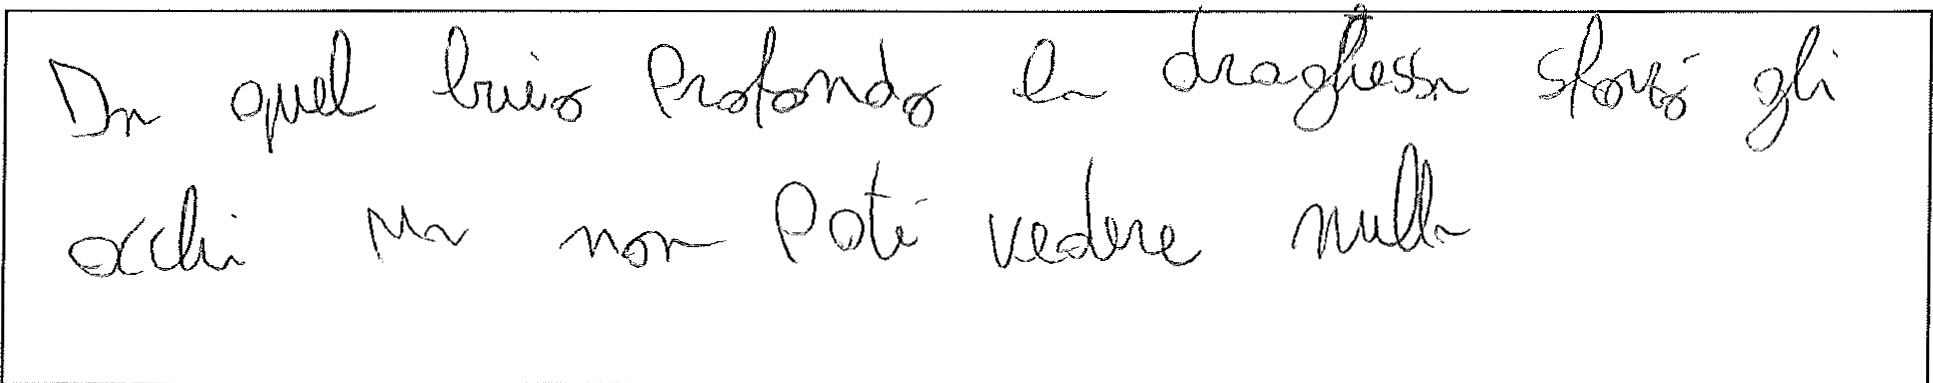 Da quel buio profondo la draghessa sforzò gli
occhi ma non poté vedere nulla